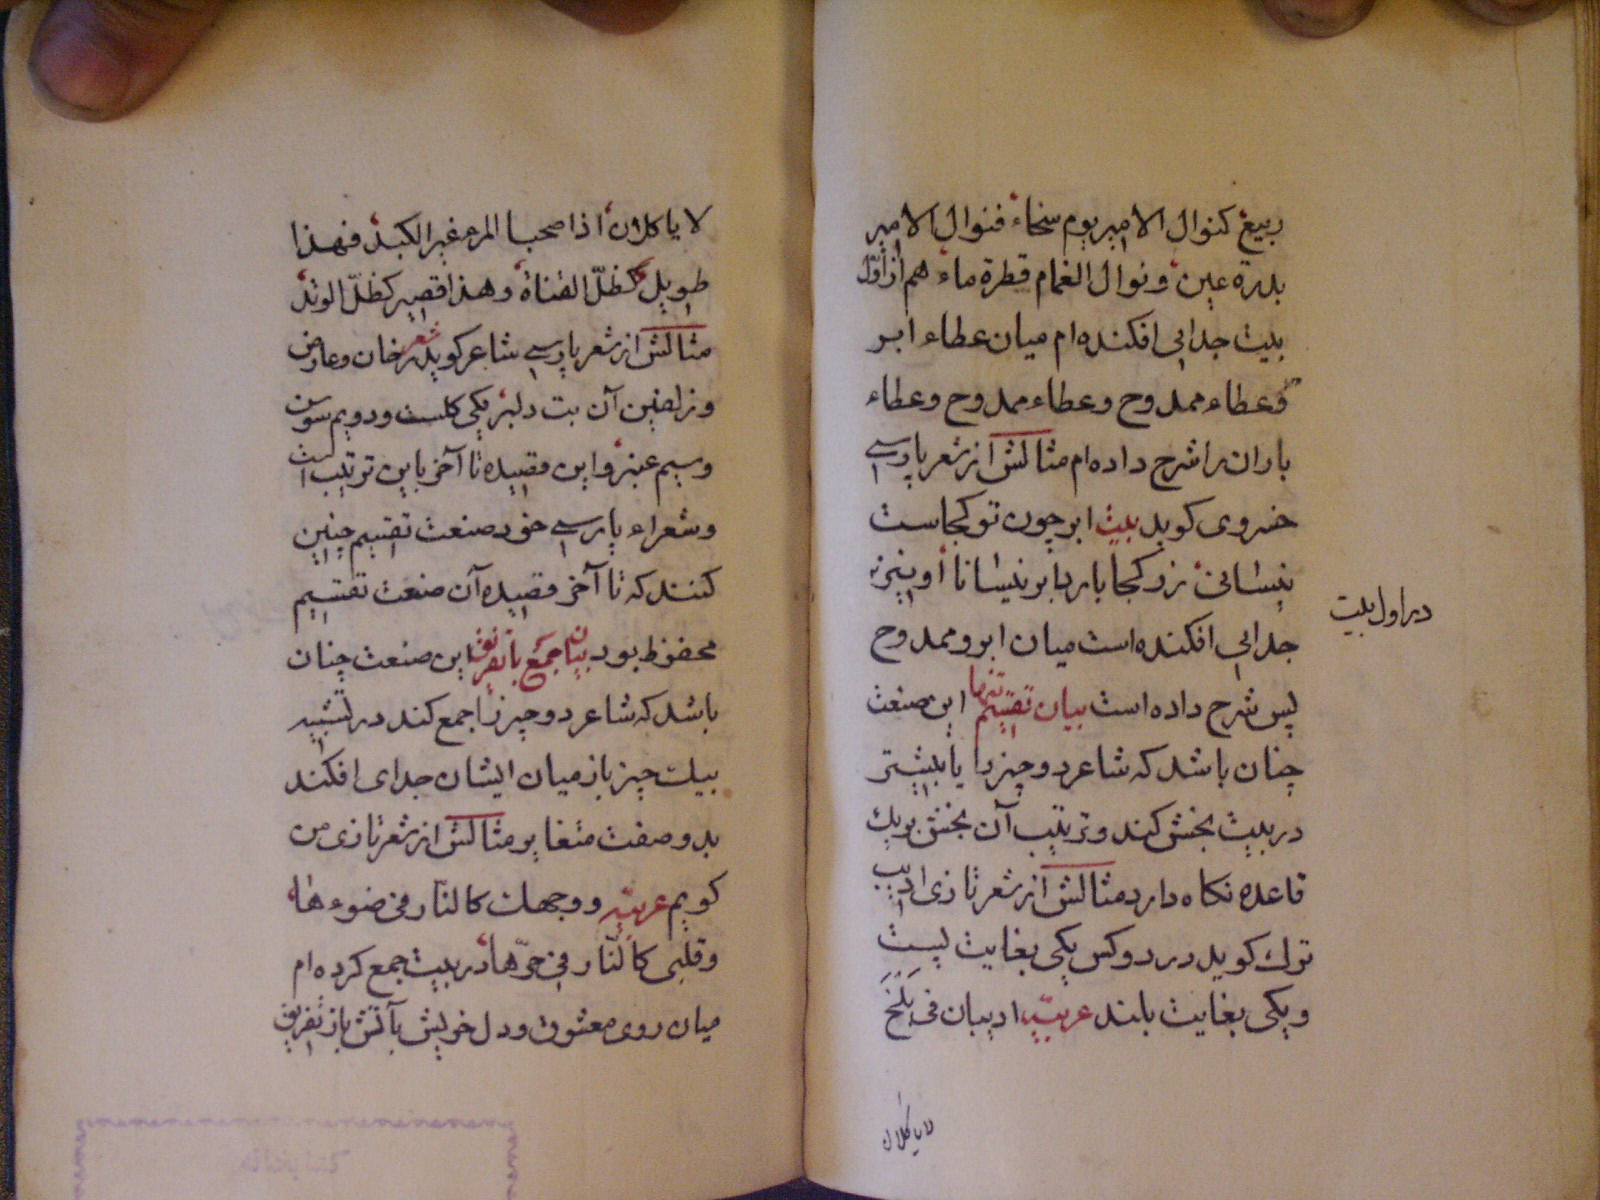 ربیع کنوال الامیر یوم سخاء فنوال الامیر
بدرة عین و نوال الغمام قطرة ماء هم از اوّل
بیت جدایی افکنده ام میان عطاء ابر
وعطاء ممدوح وعطاء ممدوح وعطاء
باران را شرح داده ام مثالش از شعر پارسی
خسروی کوید بیت ابر چون تو کجاست
نیسانی زر کجا بارد ابر نیسانا او نیز
در اول بیت
جدایی افکنده است میان ابر و ممدوح
پس شرح داده است بیان تقسیم تنها این صنعت
چنان باشد که شاعر دو چیز را یا بیشتر
در بیت بخش کند و ترتیب آن بخش بر یك
قاعده نکاه دارد مثالش از شعر تازی ادیب
ترك کوید در دو کس یکی بغایت پست
و یکی بغایت بلند عربیّه ادیبان فی بَلَخَ
لایاکلان
لا یاکلان اذا صحبا المرء غیر الکبد فهذا
طویل کظلّ القناة وهذا قصیر کظلّ الوتد
مثالش از شعر پارسی شاعر کوید شعر رخان و عارض
و زلفین آن بت دلبر یکی کلست و دویم سوسن
و سیم عنبر و این قصیده تا آخر باین ترتیب است
و شعراء پارسی خود صنعت تقسیم چنین
کنند که تا آخر قصیده آن صنعت تقسیم
محفوظ بود بیان جمع با تفریق این صنعت چنان
باشد که شاعر دو چیز را جمع کند در تشبیه
بیك چیز باز میان ایشان جدای افکند
بدو صفت متغایر مثالش از شعر تازی من
کویم عربیّه ووجهك کالنّار فی ضوءها
وقلبی کالنّار فی حرّها در بیت جمع کرده ام
میان روی معشوق و دل خویش بآتش باز تفریق